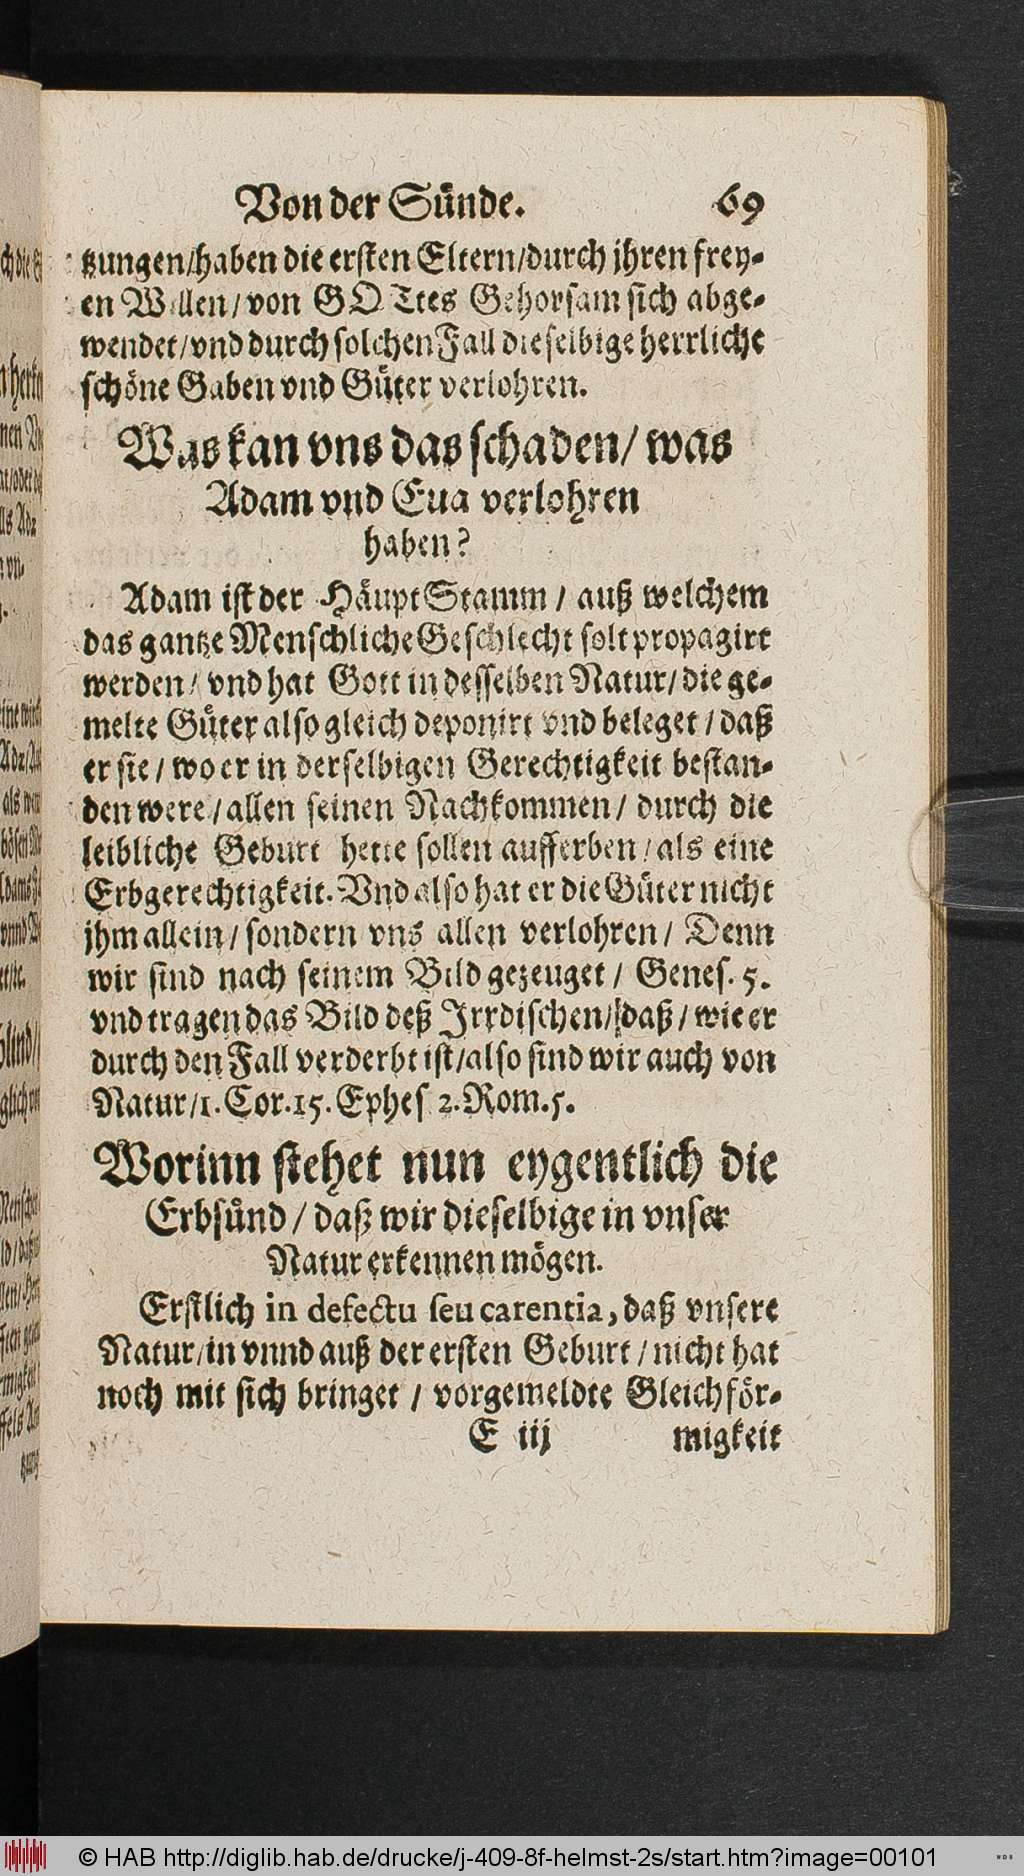 Von der Sünde. 69
tzungen/haben die ersten Eltern/durch jhren frey-
en Willen/von GOTtes Gehorsam sich abge-
wendet/vnd durch solchen Fall dieselbige herrliche
schöne Gaben vnd Güter verlohren.
Was kan vns das schaden/was
Adam vnd Eua verlohren
haben?
Adam ist der HäuptStamm/auß welchem
das gantze Menschliche Geschlecht solt propagirt
werden/vnd hat Gott in desselben Natur/die ge-
melte Güter also gleich deponirt vnd beleget/daß
er sie/wo er in derselbigen Gerechtigkeit bestan-
den were/allen seinen Nachkommen/durch die
leibliche Geburt hette sollen aufferben/als eine
Erbgerechtigkeit. Vnd also hat er die Güter nicht
jhm allein/sondern vns allen verlohren/Denn
wir sind nach seinem Bild gezeuget/Genes. 5.
vnd tragen das Bild deß Irrdischen/daß/wie er
durch den Fall verderbt ist/also sind wir auch von
Natur/1. Cor. 15. Ephes 2. Rom. 5.
Worinn stehet nun eygentlich die
Erbsünd/daß wir dieselbige in vnser
Natur erkennen mögen.
Erstlich in defectu seu carentia, daß vnsere
Natur/in vnnd auß der ersten Geburt/nicht hat
noch mit sich bringet/vorgemeldte Gleichför-
E iij migkeit
© HAB http://diglib.hab.de/drucke/j-409-8f-helmst-2s/start.htm?image=00101